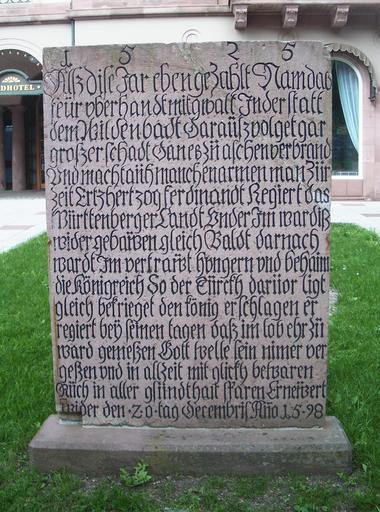 1 5 2 5
Alß dise Jar eben gezahlt Nam das
feür vberhandt mit gwalt In der statt
dem Wildenbadt Darauß volget gar
großer schadt Gantz Zů äschen verbrand
Vnd macht auch manchen armen man Zů
Zeit Ertzhertzog ferdinandt Regiert das
Württenberger Landt Vnder Im ward diß
wider gebawen gleich Baldt darnach
wardt Im vertrawt hungern vnd behaim
die Königreich So der Türckh darüor ligt
gleich bekrieget den könig erschlagen er
regiert bey seinen tagen daß im lob ehr zů
ward gemeßen Gott welle sein nimer ver
geßen vnd in allzeit mit glickh bewaren
Auch in aller gsundthait sparen Erneüvert
wider den 20 tag Decembris Año 1598
DHOTEL